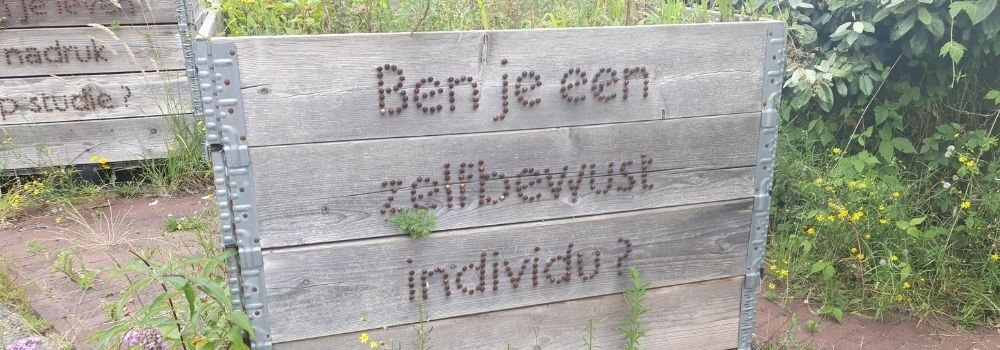 je leven
nadruk
p-studie?
Ben je een
zelfbewust
individu?